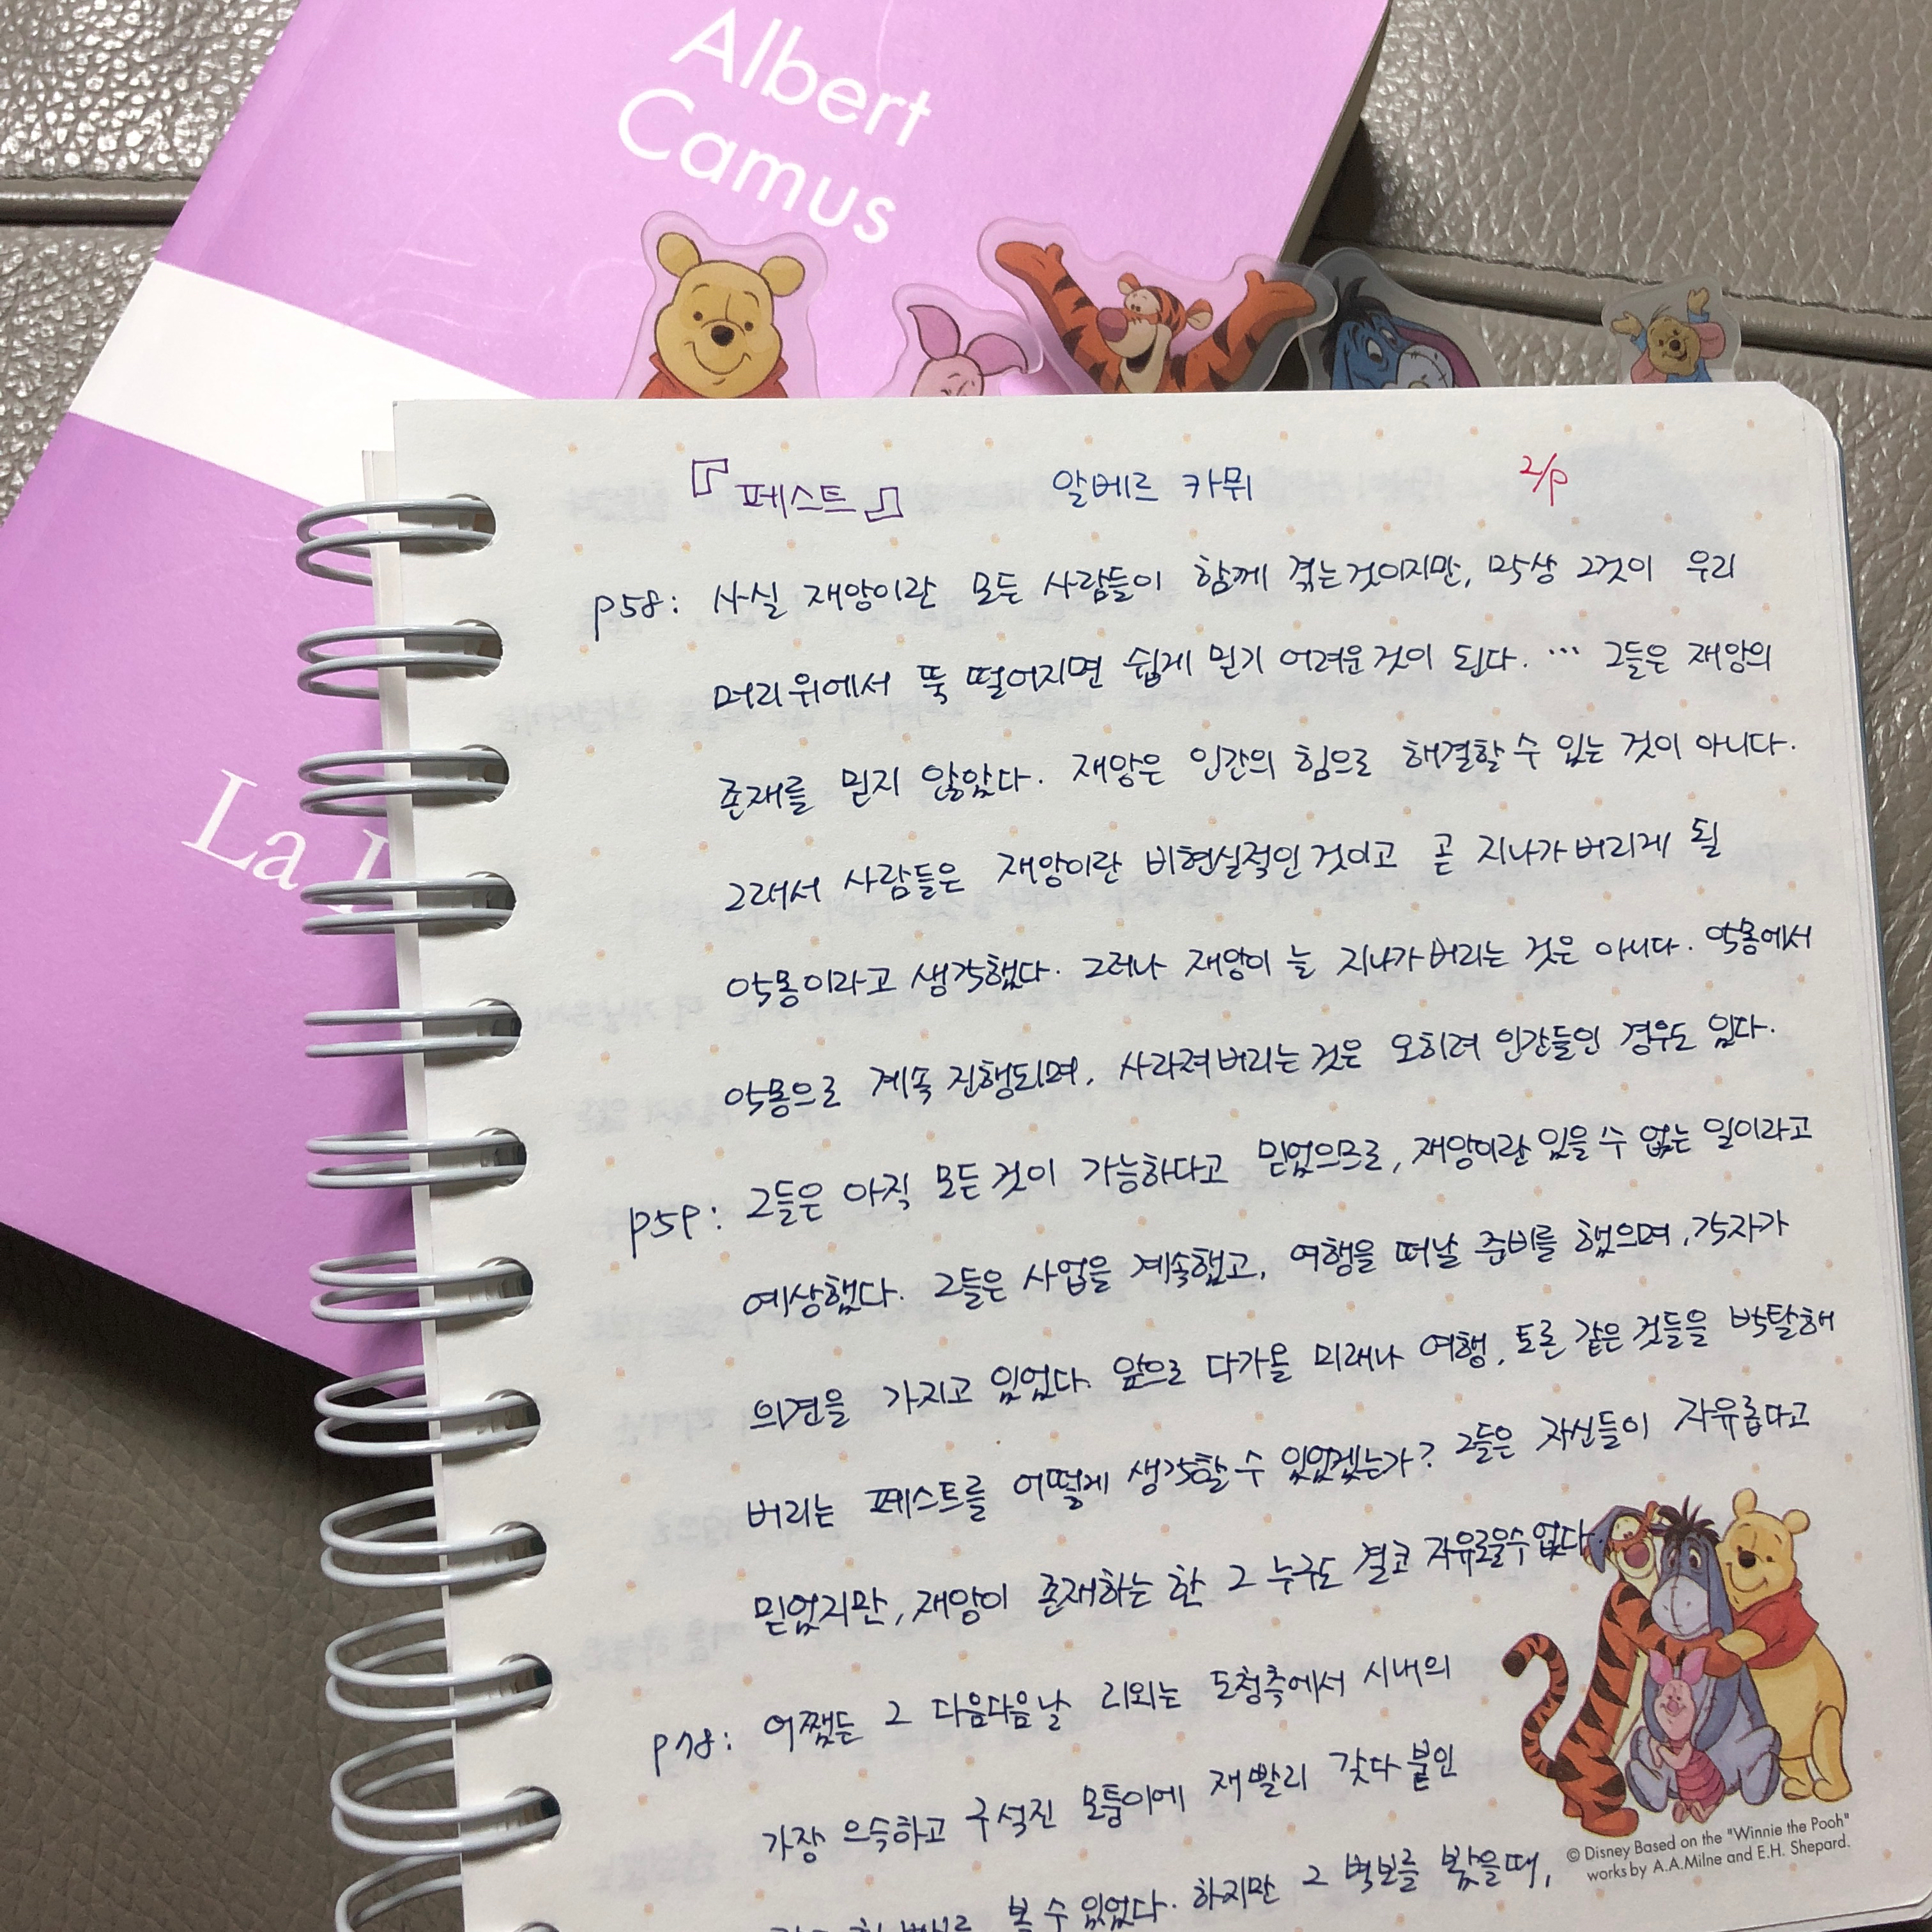 Albert
Camus
La
『페스트』 알베르 카뮈 2/9
p58: 사실 재앙이란 모든 사람들이 함께 겪는것이지만, 막상 그것이 우리
머리위에서 뚝 떨어지면 쉽게 믿기 어려운것이 된다. … 그들은 재앙의
존재를 믿지 않았다. 재앙은 인간의 힘으로 해결할수 있는 것이 아니다.
그래서 사람들은 재앙이란 비현실적인것이고 곧 지나가버리게 될
악몽이라고 생각했다. 그러나 재앙이 늘 지나가버리는 것은 아니다. 악몽에서
악몽으로 계속 진행되며, 사라져버리는것은 오히려 인간들인 경우도 있다.
p59: 그들은 아직 모든것이 가능하다고 믿었으므로, 재앙이란 있을수 없는 일이라고
예상했다. 그들은 사업을 계속했고, 여행을 떠날 준비를 했으며, 각자가
의견을 가지고 있었다. 앞으로 다가올 미래나 여행, 토론 같은 것들을 박탈해
버리는 페스트를 어떻게 생각할수 있었겠는가? 그들은 자신들이 자유롭다고
믿었지만, 재앙이 존재하는 한 그 누구도 결코 자유로울수없다
p78: 어쨌든 그 다음다음날 리외는 도청측에서 시내의
가장 으슥하고 구석진 모퉁이에 재빨리 갖다 붙인
볼 수 있었다. 하지만 그 벽보를 봤을때,
© Disney Based on the "Winnie the Pooh"
works by A.A.Milne and E.H. Shepard.